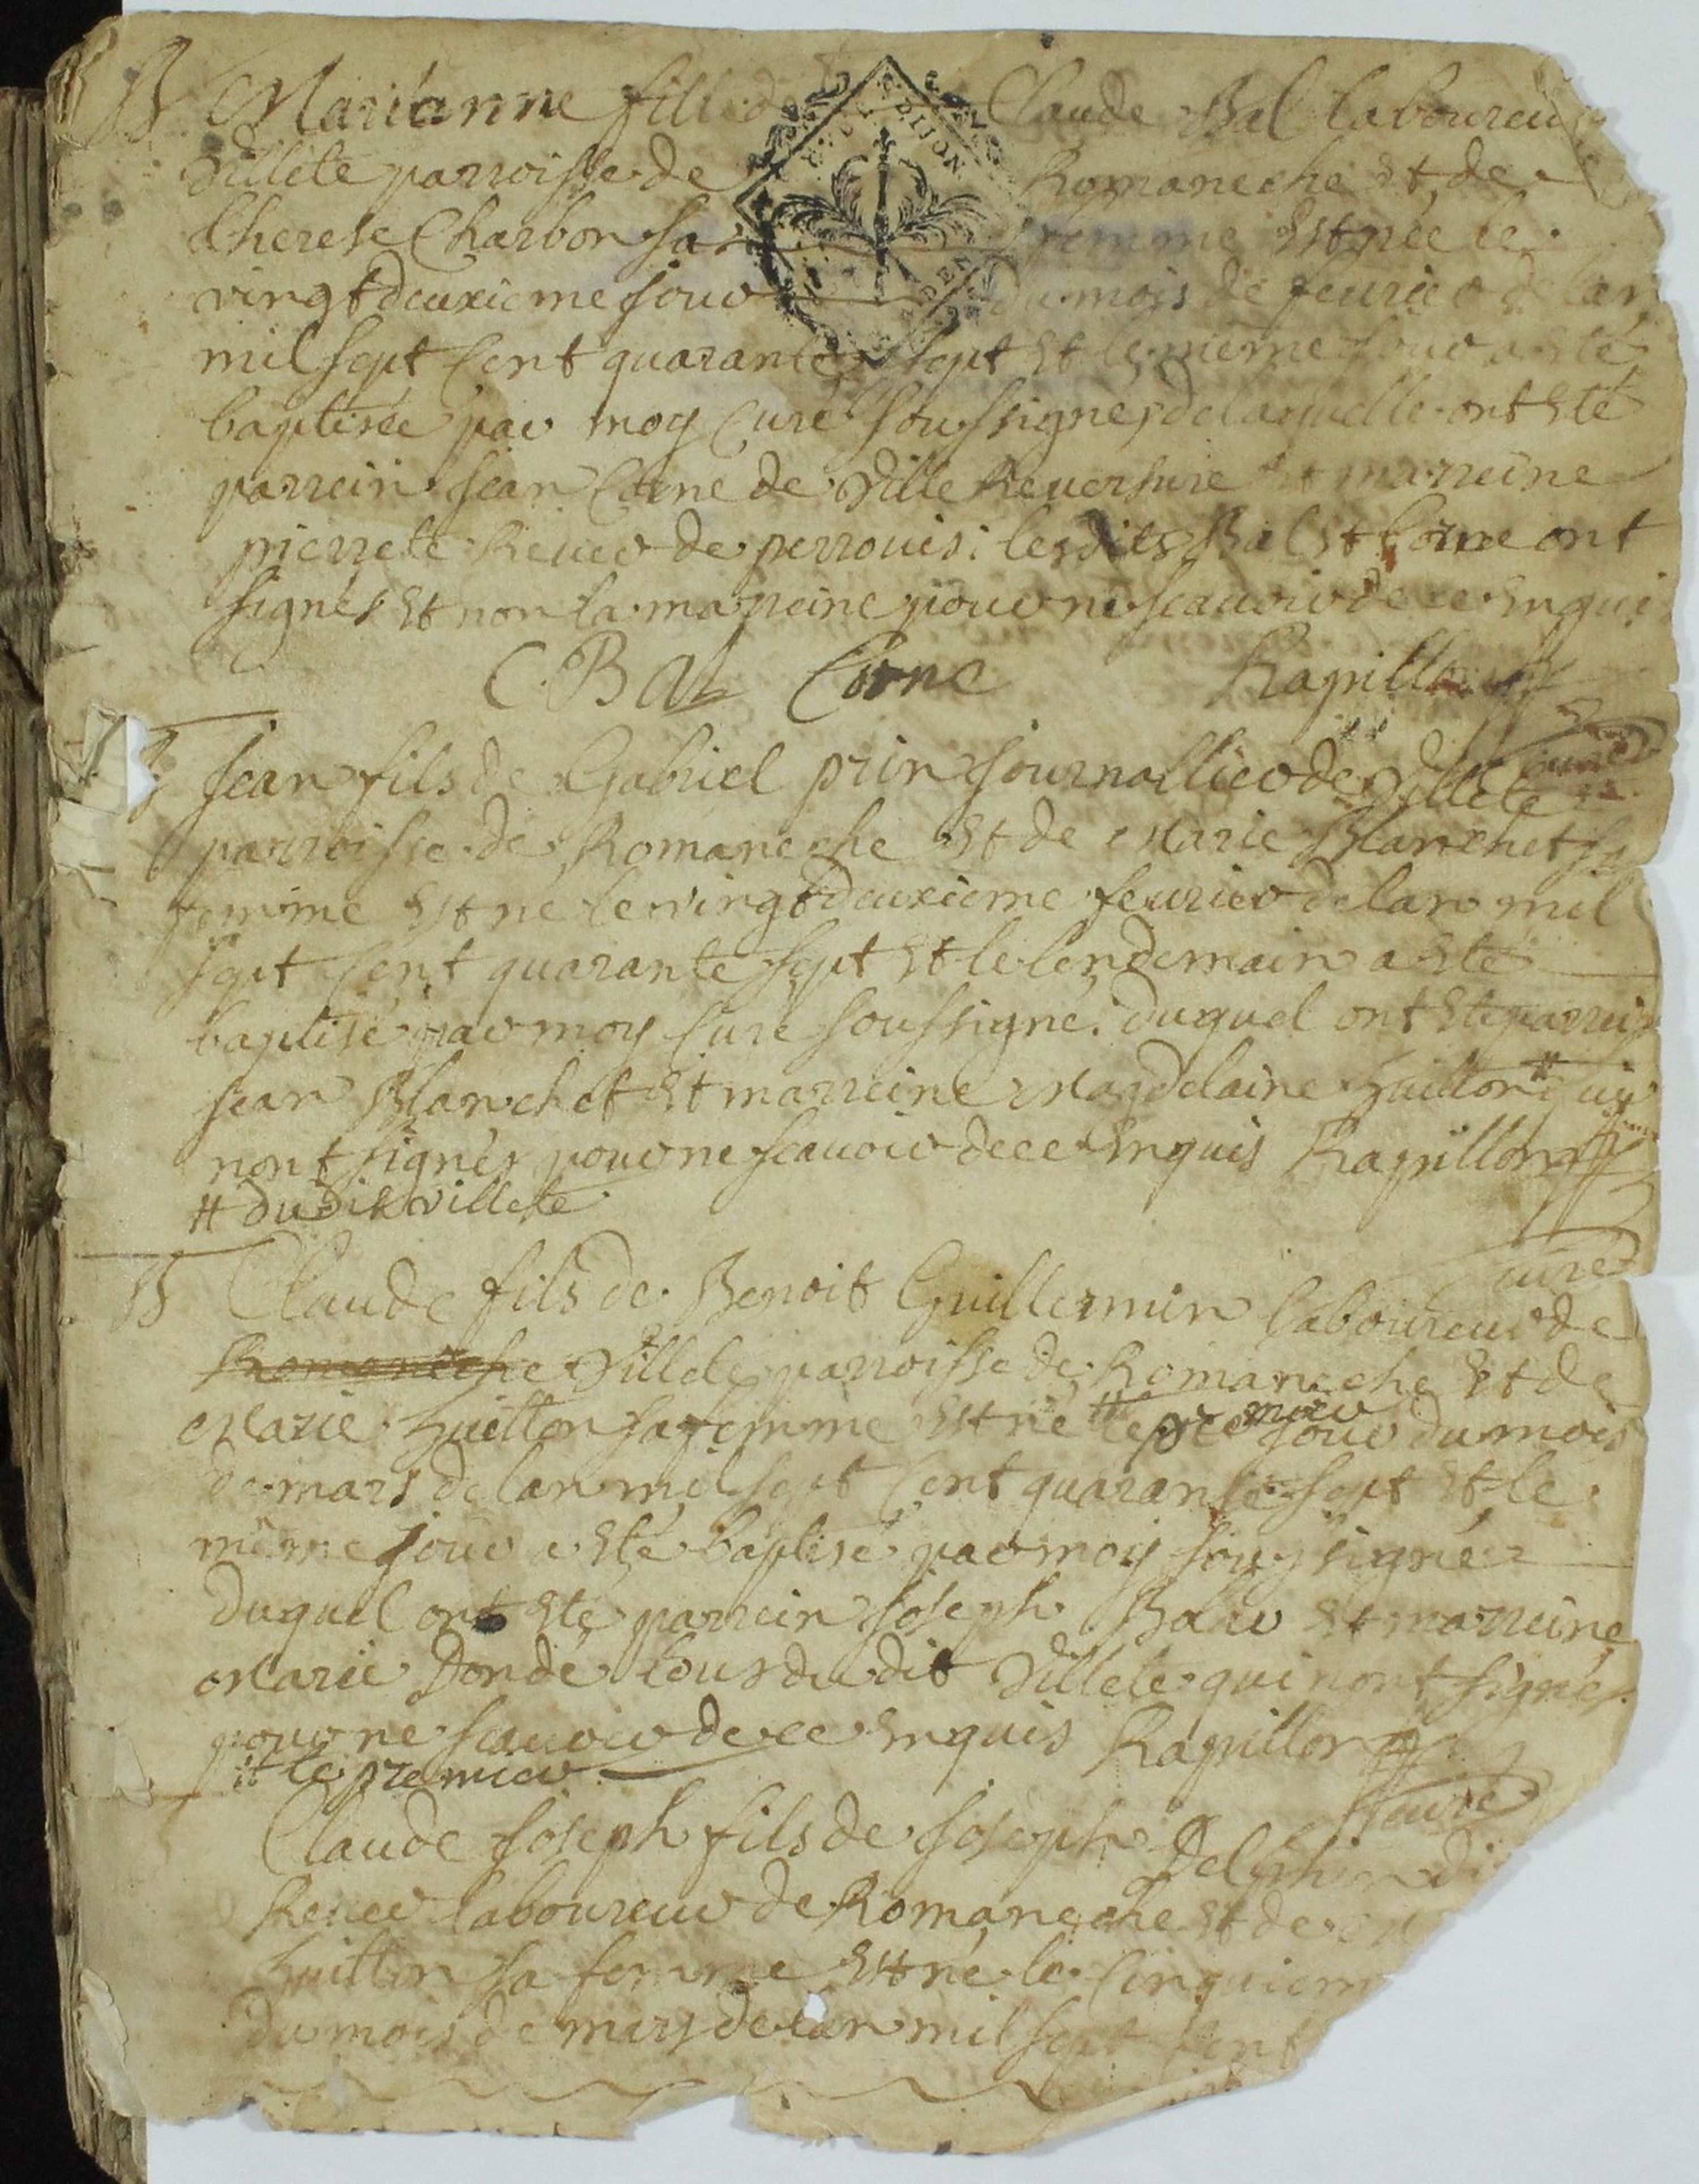 B Marianne fille de Claude Bal laboureur
Villete parroisse de Romaneche et de
therese Charbon sa femme est née le
vingt deuxieme jour du mois de feurier de lan
mil sept cent quarante sept et le meme jour a eté
baptisée par moy curé soussigné, de laquelle ont eté
parrein jean Corne de Villereversure et marreine
pierrete Reuer de perrouis: lesdits Bal et Corne ont
signés et non la marreine pour ne scauoir de ce enqui
C. BAL Corne Rapillon
curé
B jean fils de Gabriel prin journallier de Villete
parroisse de Romaneche et de Marie Blanchet sa
femme est né le vingt deuxieme feurier de lan mil
sept cent quarante sept et le lendemain a eté
baptisé par moy curé soussigné. duquel ont eté parrein
jean Blanchet et marreine Magdelaine huitton # qui
nont signés pour ne scauoir de ce enquis Rapillon
# dudit villete
curé
B Claude fils de Benoit Guillermin laboureur de
Romaneche Villete parroisse de Romaneche et de
Marie huitton sa femme est né # le premier jour du mois
de mars de lan mil sept cent quarante sept et le
meme jour a eté baptisé par moy soussigné
duquel ont eté parrein joseph et marreine
Marie Donde tous du dit Villete qui nont signés
pour ne scauoir de ce enquis Rapillon
# le premier
curé
Claude joseph fils de joseph di
Reuer laboureur de Romaneche et de
huitton sa femme est né le cinquiem
du mois de mars de lan mil sept cent